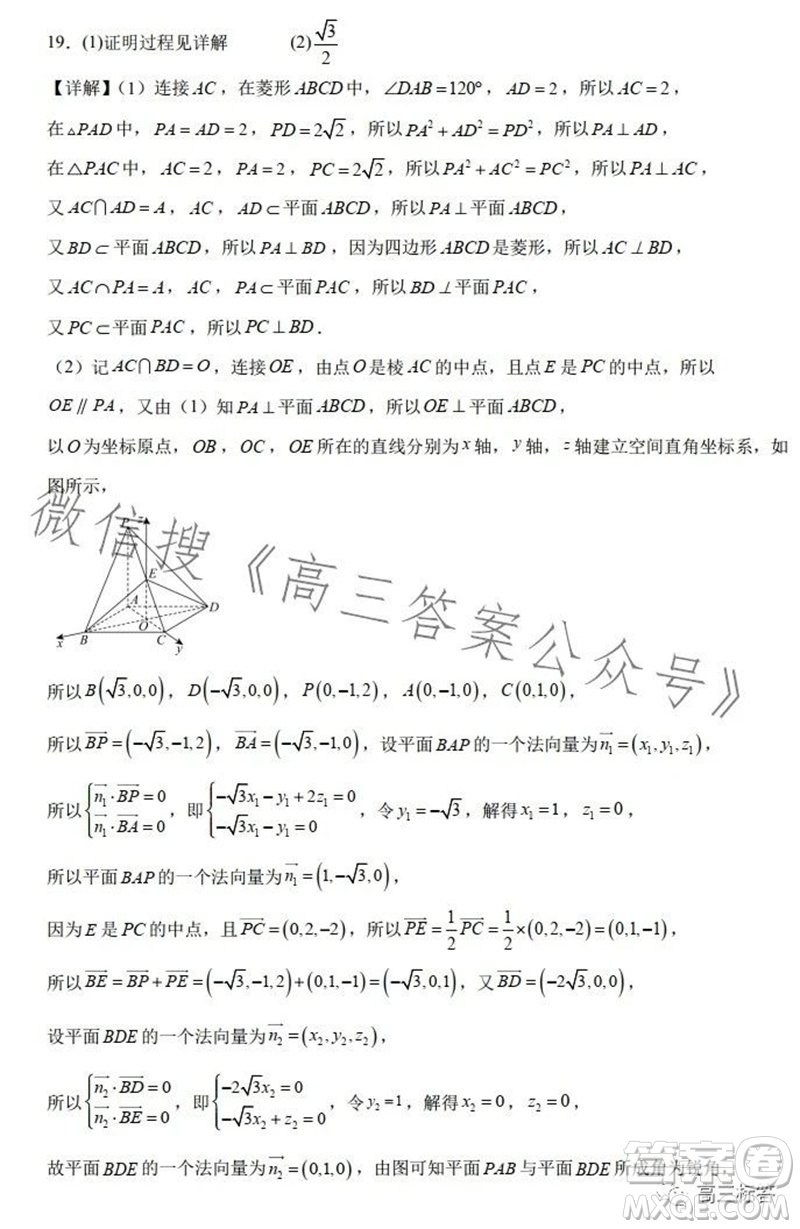 19．(1)证明过程见详解 (2)√3/2
【详解】（1）连接 AC，在菱形 ABCD 中，∠DAB=120°，AD=2，所以 AC=2，
在△PAD 中，PA=AD=2，PD=2√2，所以 PA²+AD²=PD²，所以 PA⊥AD，
在△PAC 中，AC=2，PA=2，PC=2√2，所以 PA²+AC²=PC²，所以 PA⊥AC，
又 AC∩AD=A，AC，AD⊂平面 ABCD，所以 PA⊥平面 ABCD，
又 BD⊂平面 ABCD，所以 PA⊥BD，因为四边形 ABCD 是菱形，所以 AC⊥BD，
又 AC∩PA=A，AC，PA⊂平面 PAC，所以 BD⊥平面 PAC，
又 PC⊂平面 PAC，所以 PC⊥BD．
（2）记 AC∩BD=O，连接 OE，由点 O 是棱 AC 的中点，且点 E 是 PC 的中点，所以
OE∥PA，又由（1）知 PA⊥平面 ABCD，所以 OE⊥平面 ABCD，
以 O 为坐标原点，OB，OC，OE 所在的直线分别为 x 轴，y 轴，z 轴建立空间直角坐标系，如
图所示，
P z
E
A D
O
B C
x y
微信搜《高三答案公众号》
所以 B(√3,0,0)，D(−√3,0,0)，P(0,−1,2)，A(0,−1,0)，C(0,1,0)，
所以 BP→=(−√3,−1,2)，BA→=(−√3,−1,0)，设平面 BAP 的一个法向量为 n₁→=(x₁,y₁,z₁)，
所以 {n₁→·BP→=0 n₁→·BA→=0，即 {−√3x₁−y₁+2z₁=0 −√3x₁−y₁=0，令 y₁=−√3，解得 x₁=1，z₁=0，
所以平面 BAP 的一个法向量为 n₁→=(1,−√3,0)，
因为 E 是 PC 的中点，且 PC→=(0,2,−2)，所以 PE→=1/2 PC→=1/2×(0,2,−2)=(0,1,−1)，
所以 BE→=BP→+PE→=(−√3,−1,2)+(0,1,−1)=(−√3,0,1)，又 BD→=(−2√3,0,0)，
设平面 BDE 的一个法向量为 n₂→=(x₂,y₂,z₂)，
所以 {n₂→·BD→=0 n₂→·BE→=0，即 {−2√3x₂=0 −√3x₂+z₂=0，令 y₂=1，解得 x₂=0，z₂=0，
故平面 BDE 的一个法向量为 n₂→=(0,1,0)，由图可知平面 PAB 与平面 BDE 所成角为锐角，
答案圈
高三标答
MXQE.COM